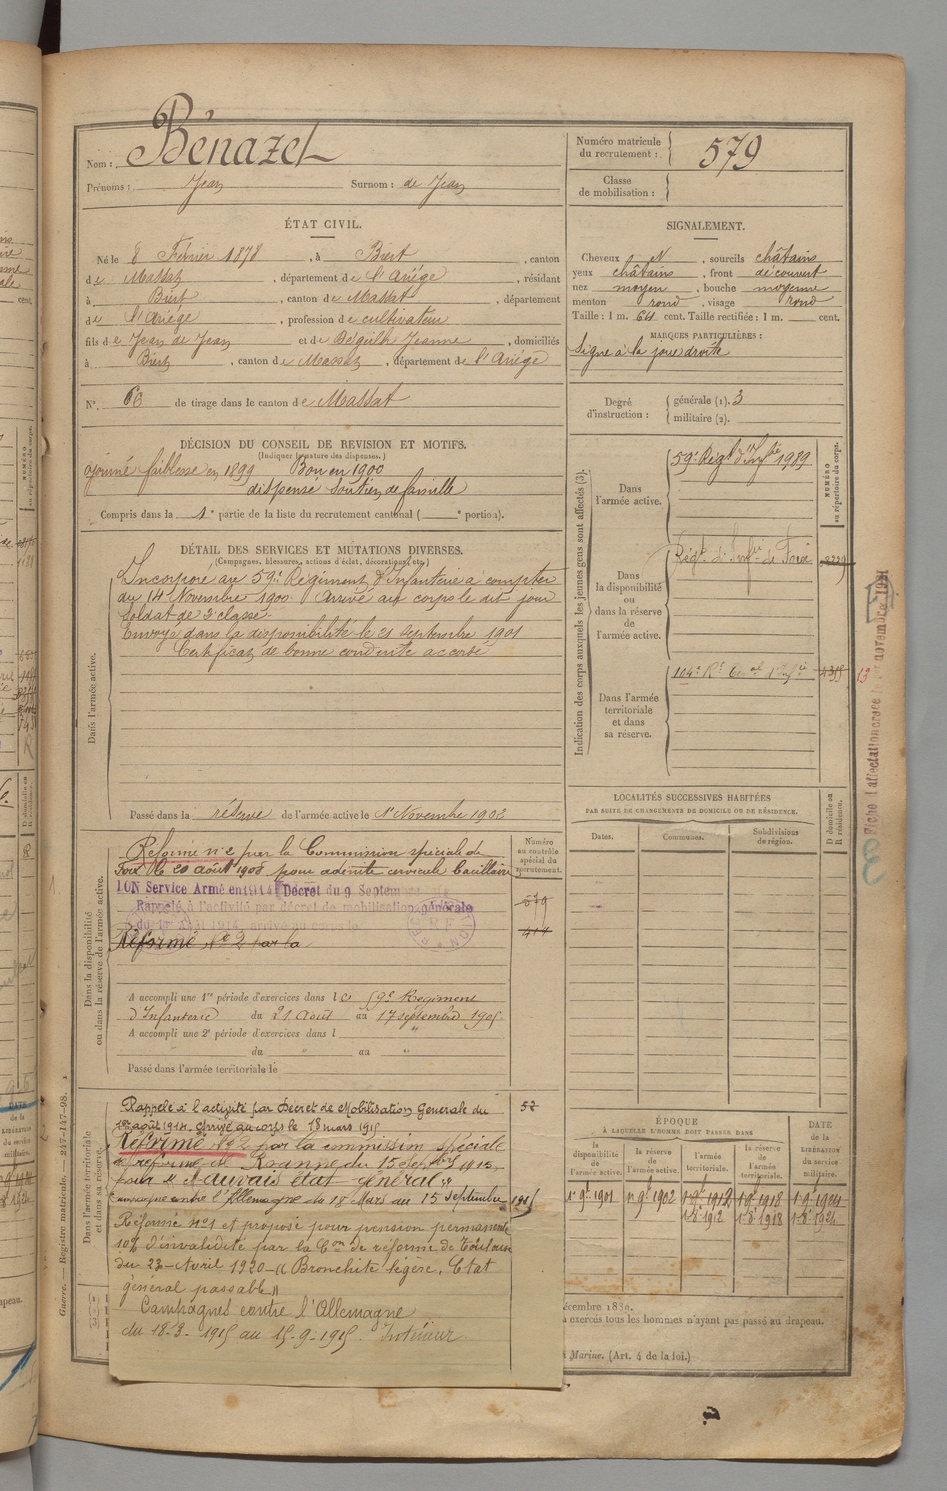 Nom : Bénazet
Prénoms : Jean Surnom : de Jean
Numéro matricule du recrutement : 579
Classe de mobilisation :
ÉTAT CIVIL.
Né le 8 Février 1878, à Biert, canton
de Massat, département de l'Ariège, résidant
à Biert, canton de Massat, département
de l'Ariège, profession de cultivateur
fils de Jean de Jean et de Jeanne, domiciliés
à Biert, canton de Massat, département de l'Ariège
N° de tirage dans le canton de Massat
SIGNALEMENT.
Cheveux N, sourcils châtains
yeux châtains, front découvert
nez moyen, bouche moyenne
menton rond, visage rond
Taille : 1 m. 64 cent. Taille rectifiée : 1 m. cent.
MARQUES PARTICULIÈRES :
Signe à la joue droite
Degré d'instruction : générale (1). 3
militaire (2).
DÉCISION DU CONSEIL DE REVISION ET MOTIFS.
(Indiquer la nature des dispenses.)
ajourné faiblesse en 1899 Bon en 1900
dispensé soutien de famille
Compris dans la 1e partie de la liste du recrutement cantonal ( e portion).
DÉTAIL DES SERVICES ET MUTATIONS DIVERSES.
(Campagnes, blessures, actions d'éclat, décorations, etc.)
Dans l'armée active.
Incorporé au 59e Régiment d'Infanterie à compter
du 14 Novembre 1900. Arrivé au corps le dit jour
Soldat de 2e classe.
Envoyé dans la disponibilité le 21 septembre 1901
Certificat de bonne conduite accordé
Passé dans la réserve de l'armée active le 1er Novembre 1902
Indication des corps auxquels les jeunes gens sont affectés (3).
NUMÉRO au répertoire du corps.
Dans l'armée active.
59e Régt d'Infie 1989
Dans la disponibilité ou dans la réserve de l'armée active.
Régt d'Infie de Foix
Dans l'armée territoriale et dans sa réserve.
104e Rt
13
LOCALITÉS SUCCESSIVES HABITÉES
PAR SUITE DE CHANGEMENTS DE DOMICILE OU DE RÉSIDENCE.
Dates. Communes. Subdivisions de région. D domicile ou R résidence.
Dans la disponibilité ou dans la réserve de l'armée active.
Numéro au contrôle spécial du recrutement.
Réformé n° 2 par la Commission spéciale de
Foix le 20 août 1908 pour adénite cervicale bacillaire
ION Service Armé en 1914 Décret du 9 Septem
Rappelé à l'activité par décret de mobilisation générale
579
Réformé N° 2 par la
A accompli une 1re période d'exercices dans le 59e Régiment
d'Infanterie du 21 Août au 17 septembre 1905
A accompli une 2e période d'exercices dans l "
du " au "
Passé dans l'armée territoriale le
Dans l'armée territoriale et dans sa réserve.
Rappelé à l'activité par Décret de Mobilisation Générale du
1er août 1914. Arrivé au corps le 18 mars 1915
52
Réformé N° 2 par la commission spéciale
de réforme de Roanne du 15 Septbre 1915
pour « Mauvais état général »
Campagne contre l'Allemagne du 18 Mars au 15 Septembre 1915
Réformé n° 1 et proposé pour pension permanente
10% d'invalidité par la Con de réforme de Toulouse
du 23 Avril 1920 « Bronchite légère. Etat
général passable »
Campagnes contre l'Allemagne
du 18-3-1915 au 15-9-1915 Intérieur
ÉPOQUE
À LAQUELLE L'HOMME DOIT PASSER DANS
la disponibilité de l'armée active. la réserve de l'armée active. l'armée territoriale. la réserve de l'armée territoriale. DATE de la LIBÉRATION du service militaire.
1er 9bre 1901 1er 9bre 1902 1er 9bre 1912 1er 9bre 1918 1er 9bre 1924
1er 8bre 1912 1er 8bre 1918 1er 8bre 1924
écembre 1889.
à exercés tous les hommes n'ayant pas passé au drapeau.
Marine. (Art. 4 de la loi.)
Guerre. — Registre matricule. — 247-147-98.